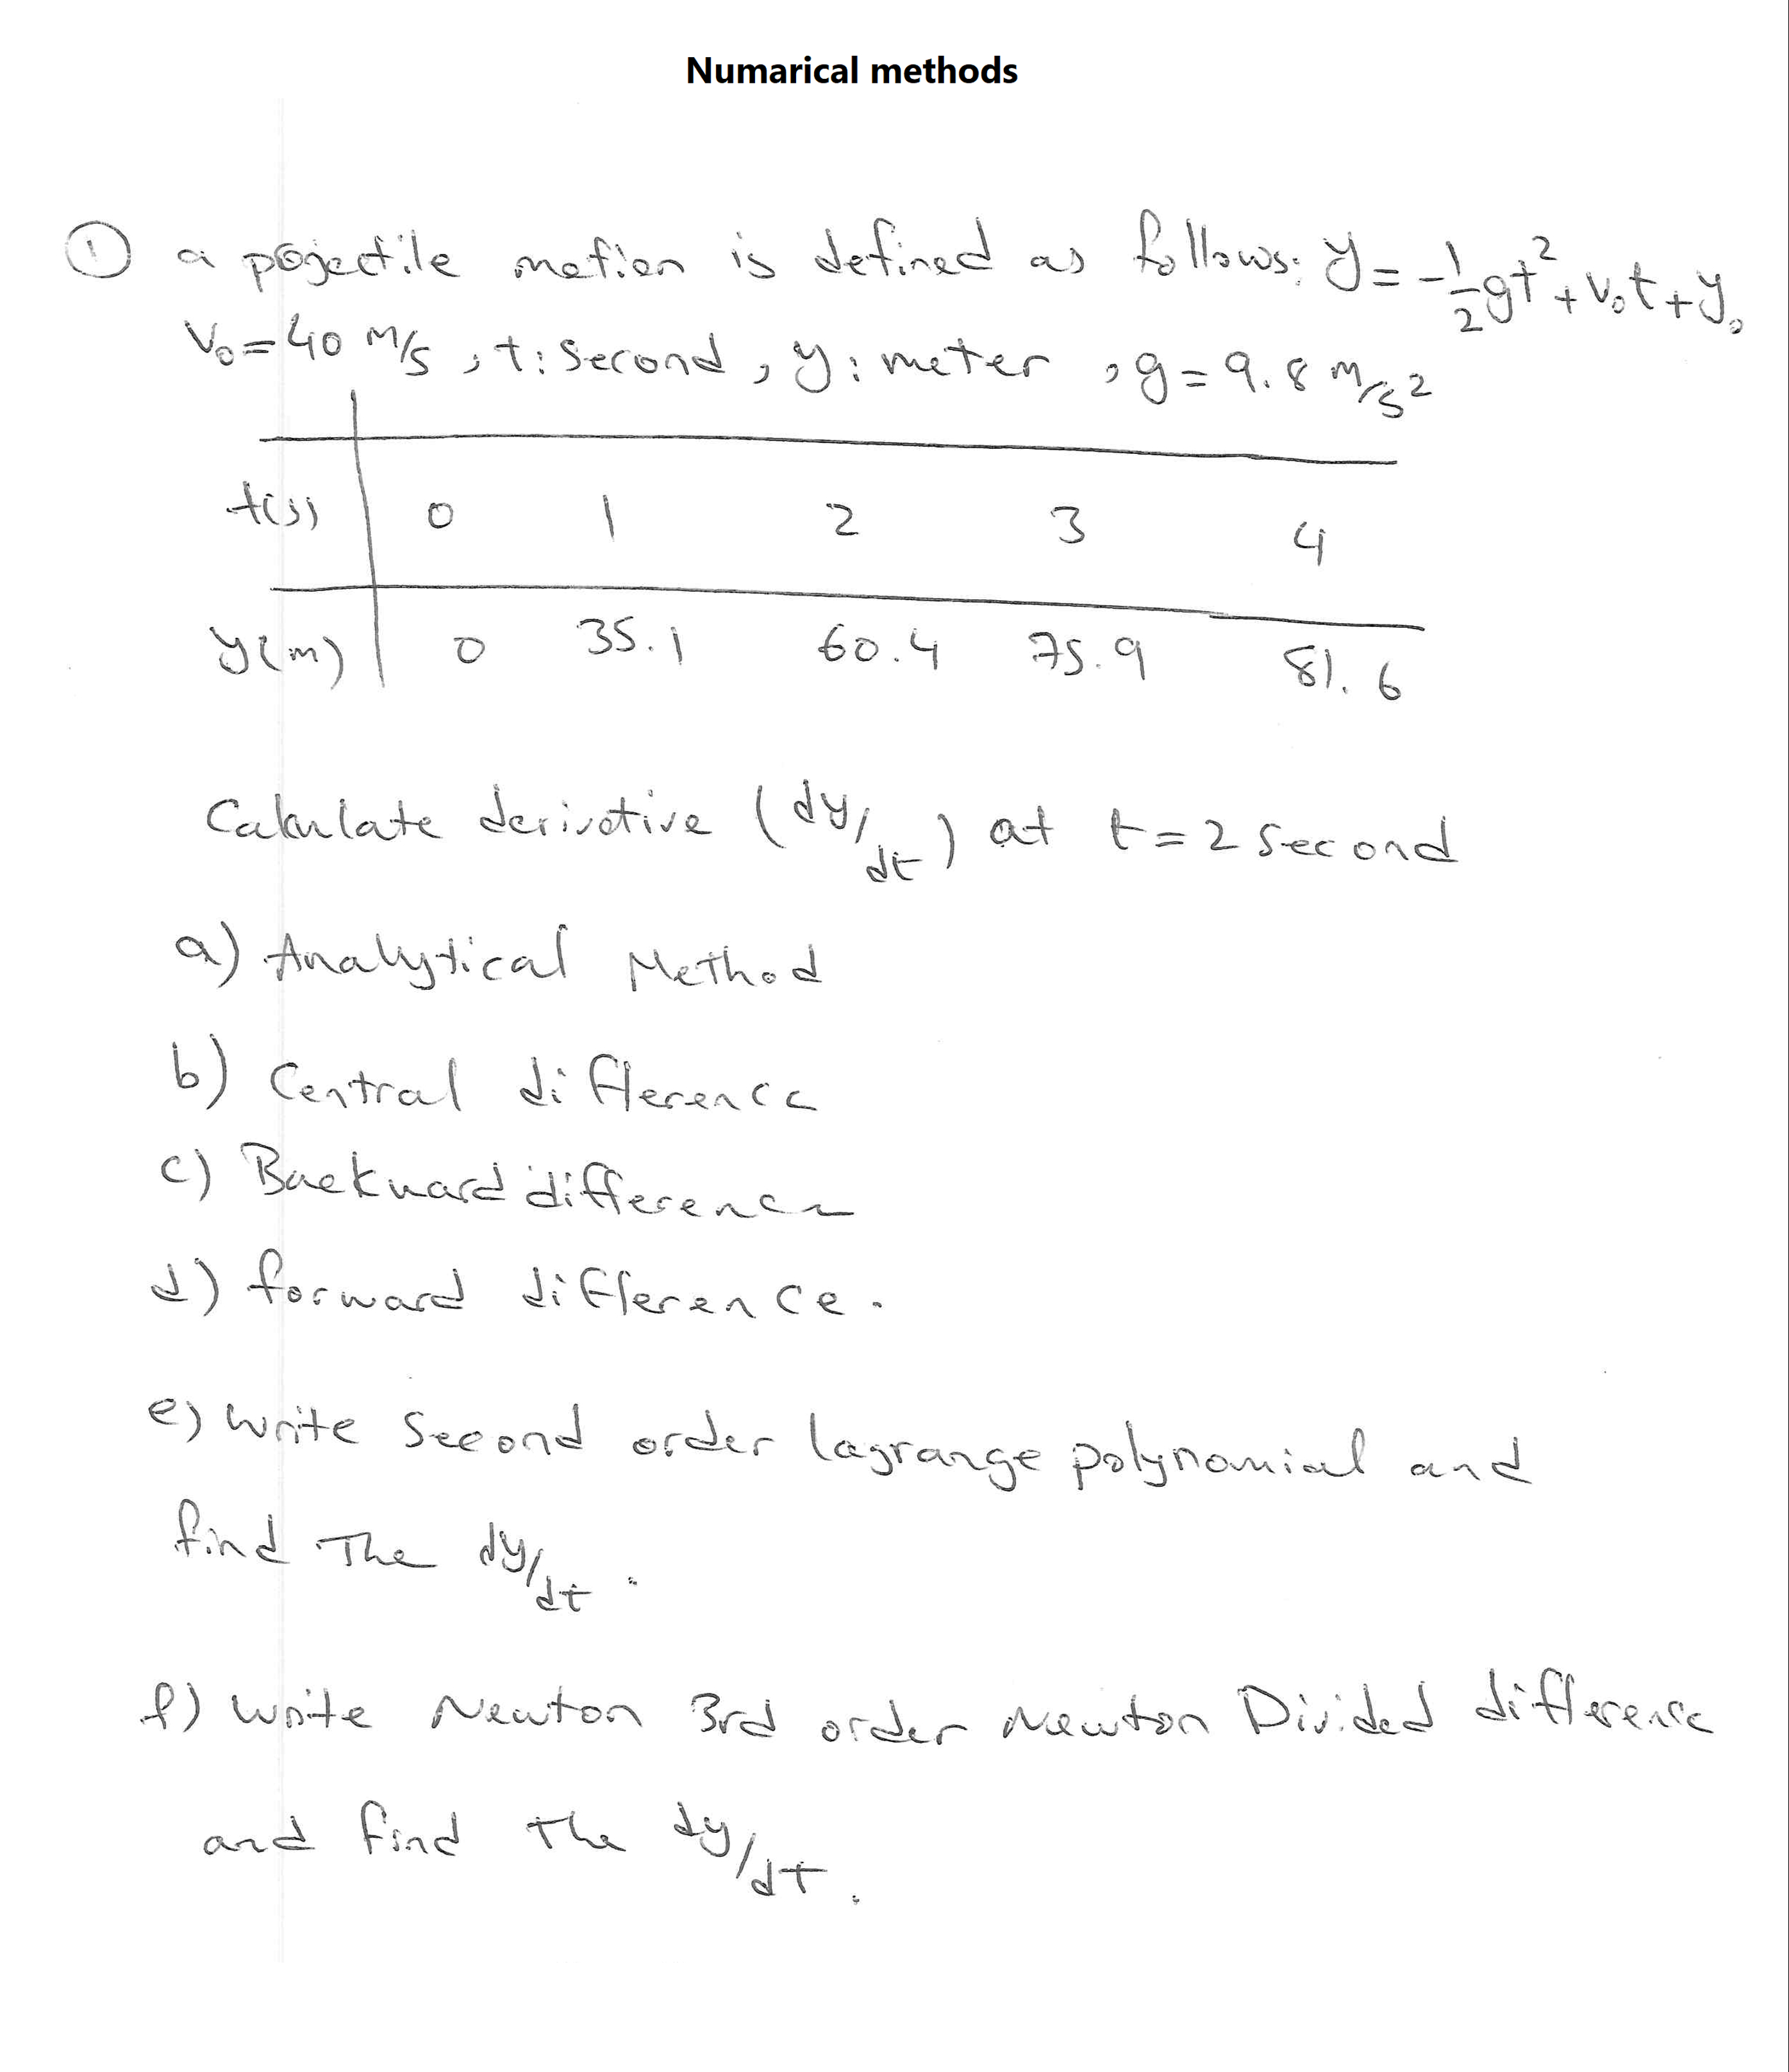 Numarical methods
① a pojectile motion is defined as follows: y = -1/2 gt² + v₀t + y₀
V₀ = 40 m/s , t: second , y: meter , g = 9.8 m/s²
t(s) 0 1 2 3 4
y(m) 0 35.1 60.4 75.9 81.6
Calculate derivative (dy/dt) at t = 2 second
a) Analytical Method
b) Central difference
c) Backward difference
d) forward difference.
e) write Second order lagrange polynomial and
find The dy/dt .
f) write Newton 3rd order Newton Divided difference
and find the dy/dt .